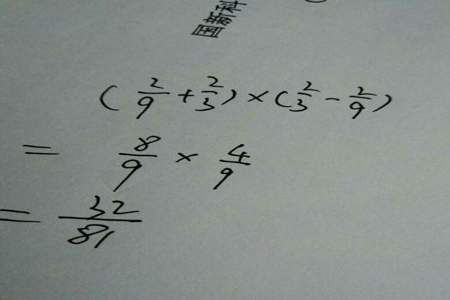 国新科
( 2/9 + 2/3 ) × ( 2/3 - 2/9 )
= 8/9 × 4/9
= 32/81